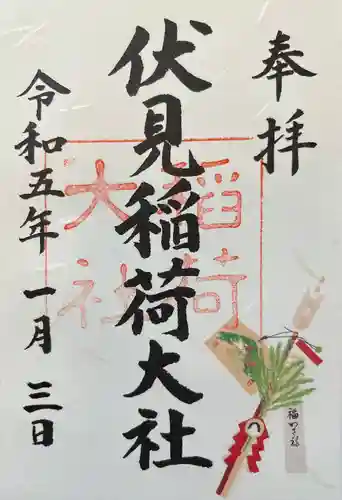 奉拝
伏見稲荷大社
令和五年一月三日
稲荷
大社